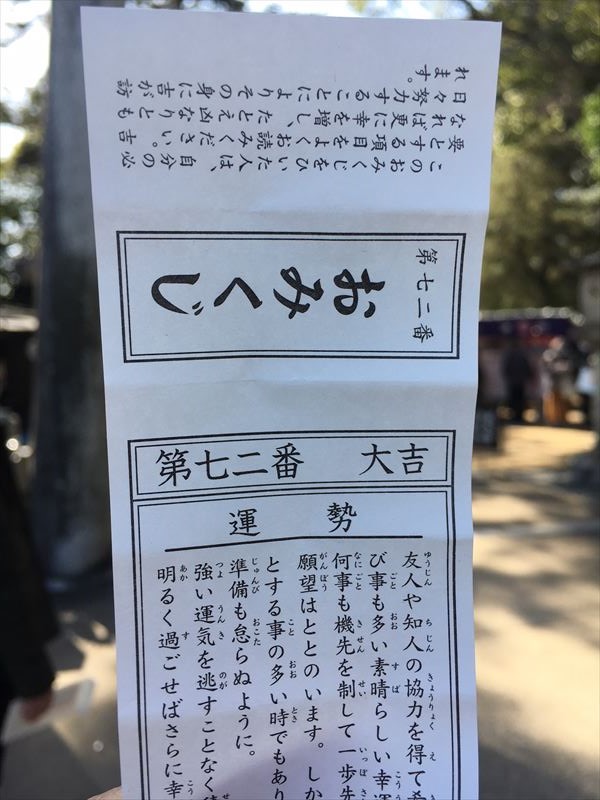 このおみくじをひいた人は、自分の必
要とする項目をよくお読みください。吉
なれば更に幸を増し、たとえ凶なりとも
日々努力することによりその身に吉が訪
れます。
第七二番
おみくじ
第七二番 大吉
運勢
友人や知人の協力を得て
び事も多い素晴らしい幸運
何事も機先を制して一歩先
願望はととのいます。しか
とする事の多い時でもあり
準備も怠らぬように。
強い運気を逃すことなく
明るく過ごせばさらに幸